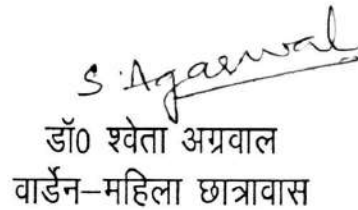 S. Agarwal
डॉ0 श्वेता अग्रवाल
वार्डेन–महिला छात्रावास